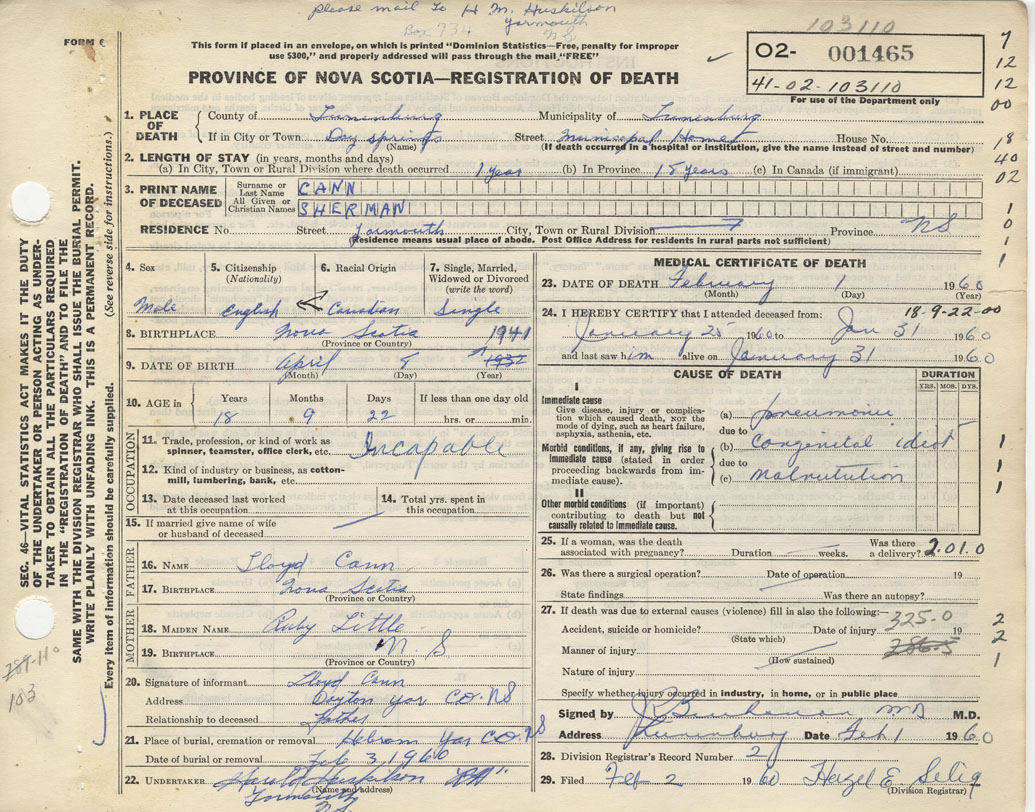 please mail to H. M. Huskilson
Yarmouth
Box 734 NS
103110
FORM 6
This form if placed in an envelope, on which is printed "Dominion Statistics—Free, penalty for improper
use $300," and properly addressed will pass through the mail "FREE"
PROVINCE OF NOVA SCOTIA—REGISTRATION OF DEATH
O2- 001465
41-02-103110
For use of the Department only
7
12
12
00
18
40
02
1
0
1
1
1. PLACE OF DEATH { County of Lunenburg Municipality of Lunenburg
If in City or Town Day springs Street Municipal Home House No.
(Name) (If death occurred in a hospital or institution, give the name instead of street and number)
2. LENGTH OF STAY (in years, months and days)
(a) In City, Town or Rural Division where death occurred 1 year (b) In Province 18 years (c) In Canada (if immigrant)
3. PRINT NAME OF DECEASED { Surname or Last Name CANN
All Given or Christian Names SHERMAN
RESIDENCE No. Street Yarmouth City, Town or Rural Division Province NS
(Residence means usual place of abode. Post Office Address for residents in rural parts not sufficient)
4. Sex 5. Citizenship (Nationality) 6. Racial Origin 7. Single, Married, Widowed or Divorced (write the word)
Male English Canadian Single
8. BIRTHPLACE Nova Scotia
(Province or Country)
1941
9. DATE OF BIRTH April 8 1932
(Month) (Day) (Year)
10. AGE in { Years Months Days If less than one day old
18 9 22 hrs. or min.
OCCUPATION
11. Trade, profession, or kind of work as spinner, teamster, office clerk, etc. Incapable
12. Kind of industry or business, as cotton-mill, lumbering, bank, etc.
13. Date deceased last worked at this occupation
14. Total yrs. spent in this occupation
15. If married give name of wife or husband of deceased
FATHER
16. NAME Lloyd Cann
17. BIRTHPLACE Nova Scotia
(Province or Country)
MOTHER
18. MAIDEN NAME Ruby Little
19. BIRTHPLACE N.S
(Province or Country)
20. Signature of informant Lloyd Cann
Address Dayton Yar CO. NS
Relationship to deceased Father
21. Place of burial, cremation or removal Hebron Yar CO. NS
Date of burial or removal Feb 3, 1960
22. UNDERTAKER Harold Huskilson
(Name and address)
Yarmouth
NS
MEDICAL CERTIFICATE OF DEATH
23. DATE OF DEATH February 1 1960
(Month) (Day) (Year)
24. I HEREBY CERTIFY that I attended deceased from: 18-9-22-00
January 25 1960 to Jan 31 1960
and last saw him alive on January 31 1960
CAUSE OF DEATH DURATION
YRS. MOS. DYS.
I
Immediate cause
Give disease, injury or complication which caused death, NOT the mode of dying, such as heart failure, asphyxia, asthenia, etc.
(a) pneumonia
due to
Morbid conditions, if any, giving rise to immediate cause (stated in order proceeding backwards from immediate cause).
(b) Congenital idiot
due to
(c) Malnutrition
II
Other morbid conditions (if important) contributing to death but not causally related to immediate cause.
1
1
1
25. If a woman, was the death associated with pregnancy? Duration weeks. Was there a delivery? 2.01.0
26. Was there a surgical operation? Date of operation 19
State findings Was there an autopsy?
27. If death was due to external causes (violence) fill in also the following:
325-0
Accident, suicide or homicide? Date of injury 19
(State which)
Manner of injury
(How sustained)
286-5
Nature of injury
2
2
1
Specify whether injury occurred in industry, in home, or in public place
Signed by J R Buchanan MD M.D.
Address Lunenburg Date Feb 1 1960
28. Division Registrar's Record Number 2
29. Filed Feb 2 1960 Hazel E. Selig
(Division Registrar)
SEC. 46—VITAL STATISTICS ACT MAKES IT THE DUTY
OF THE UNDERTAKER OR PERSON ACTING AS UNDER-
TAKER TO OBTAIN ALL THE PARTICULARS REQUIRED
IN THE "REGISTRATION OF DEATH" AND TO FILE THE
SAME WITH THE DIVISION REGISTRAR WHO SHALL ISSUE THE BURIAL PERMIT.
WRITE PLAINLY WITH UNFADING INK. THIS IS A PERMANENT RECORD.
Every item of information should be carefully supplied. (See reverse side for instructions.)
103